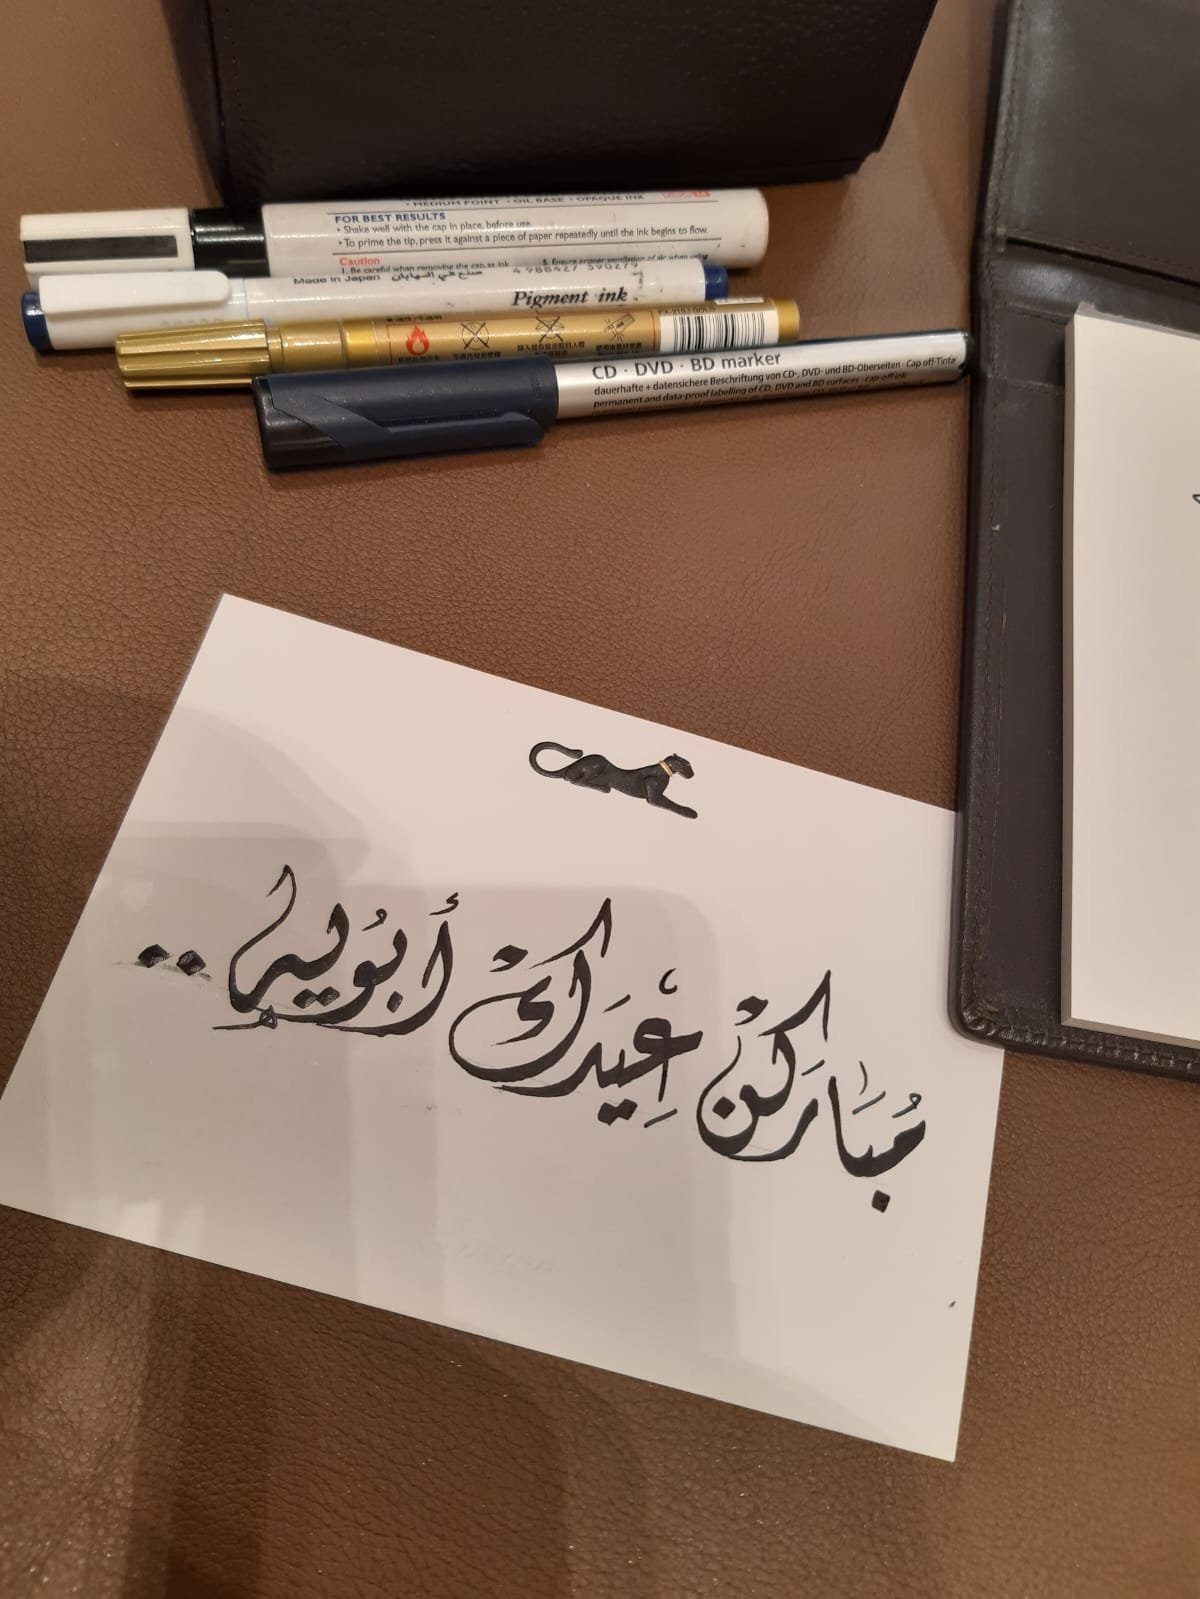 MEDIUM POINT • OIL BASE • OPAQUE INK
FOR BEST RESULTS
• Shake well with the cap in place, before use.
• To prime the tip, press it against a piece of paper repeatedly until the ink begins to flow.
Caution
1. Be careful when removing the cap, as ink
Made in Japan صنع في اليابان 4 988427 590279
Pigment ink
CD · DVD · BD marker
dauerhafte + datensichere Beschriftung von CD-, DVD- und BD-Oberseiten · Cap off-Tinte
permanent and data-proof labelling of CD, DVD and BD surfaces · cap-off ink
مُبَاركنْ عِيَدكْ أبُو